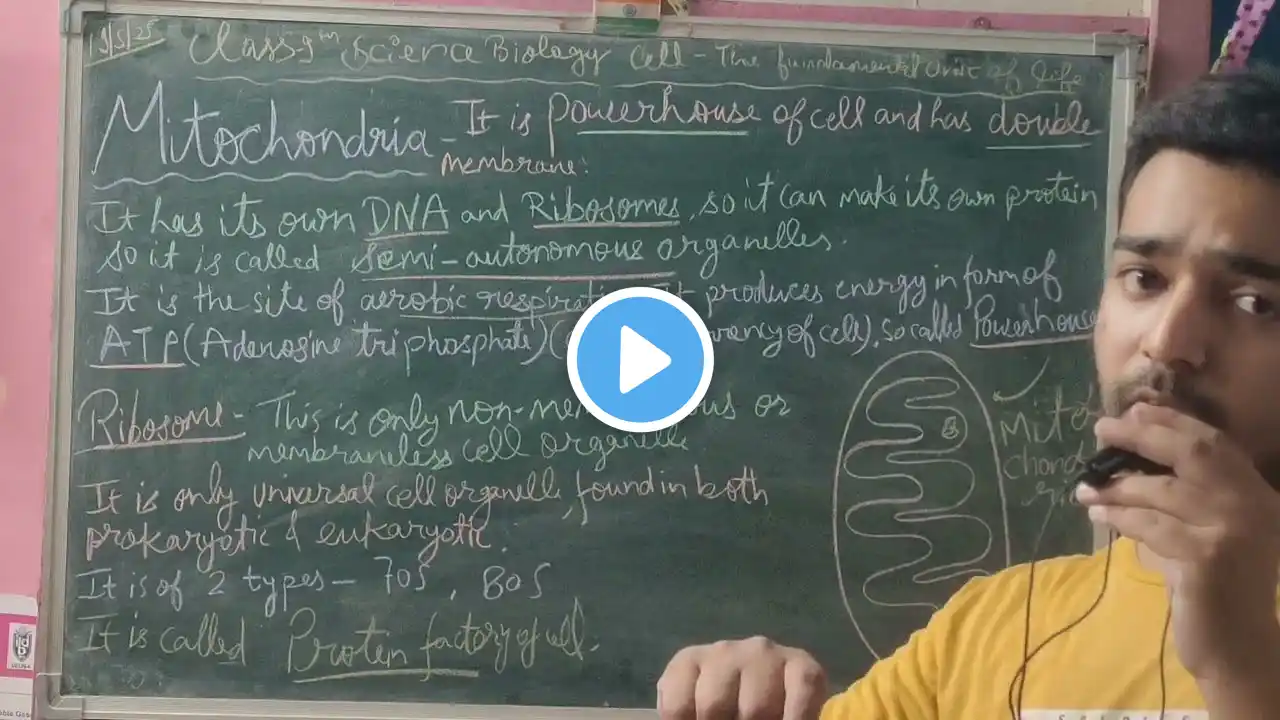 15/5/25 Class-9th Science Biology Cell - The fundamental Unit of life
Mitochondria - It is Powerhouse of cell and has double
membrane:
It has its own DNA and Ribosomes, so it can make its own protein
so it is called semi-autonomous organelles.
It is the site of aerobic respiration It produces energy in form of
ATP (Adenosine triphosphate) ( of cell), so called Powerhouse
Ribosome - This is only or
membraneless cell organelle
It is only universal cell organelle, found in both
prokaryotic & eukaryotic.
It is of 2 types - 70S, 80S
It is called Protein factory of cell.
Mito
chond